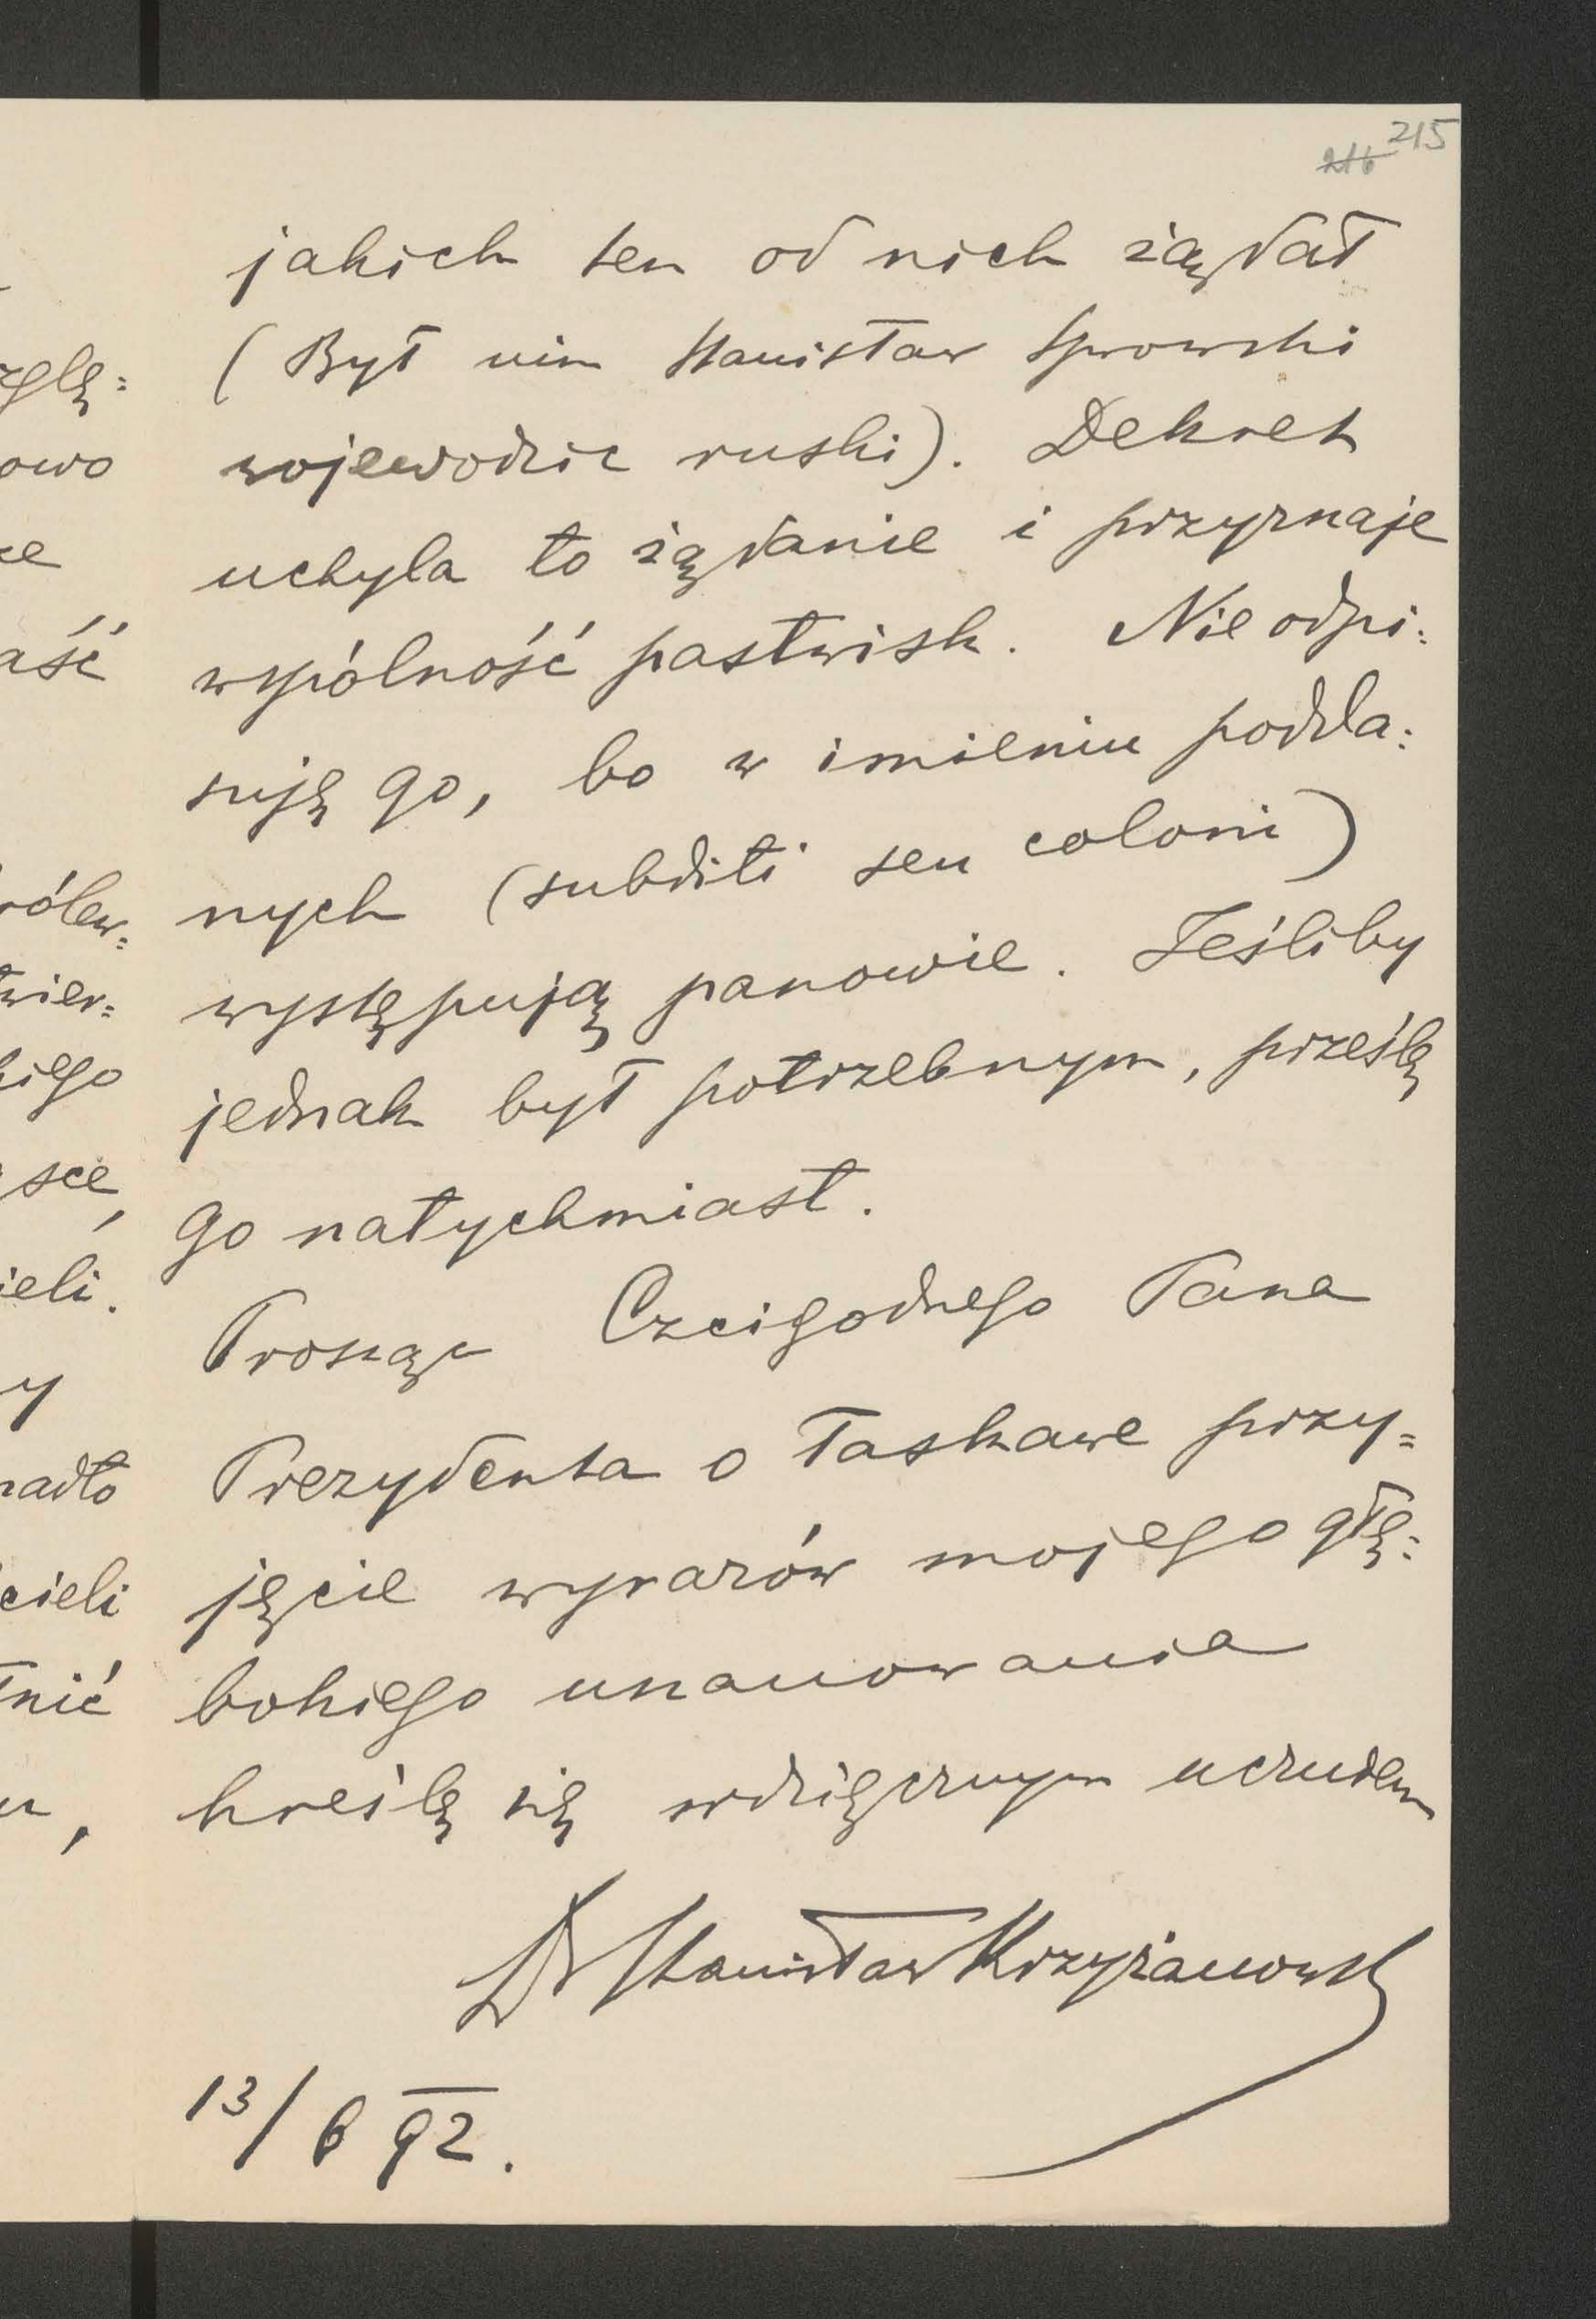 215
216
jakich ten od nich żądał
(Był nim Stanisław Sprowski
wojewodzic ruski). Dekret
uchyla to żądanie i przyznaje
wspólność pastwisk. Nie odpi:
suję go, bo w imieniu podda:
nych (subditi seu coloni)
występują panowie. Jeśliby
jednak był potrzebnym, prześlę
go natychmiast.
Prosząc Czcigodnego Pana
Prezydenta o łaskawe przy=
jęcie wyrazów mojego głę:
bokiego uszanowania
kreślę się wdzięcznym uczuciem
Dr Stanisław Krzyżanowski
13/6 92.
zglę:
owo
ze
aść
rólew:
twier:
kiego
sce,
ieli.
y
nadto
cieli
łnić
u,